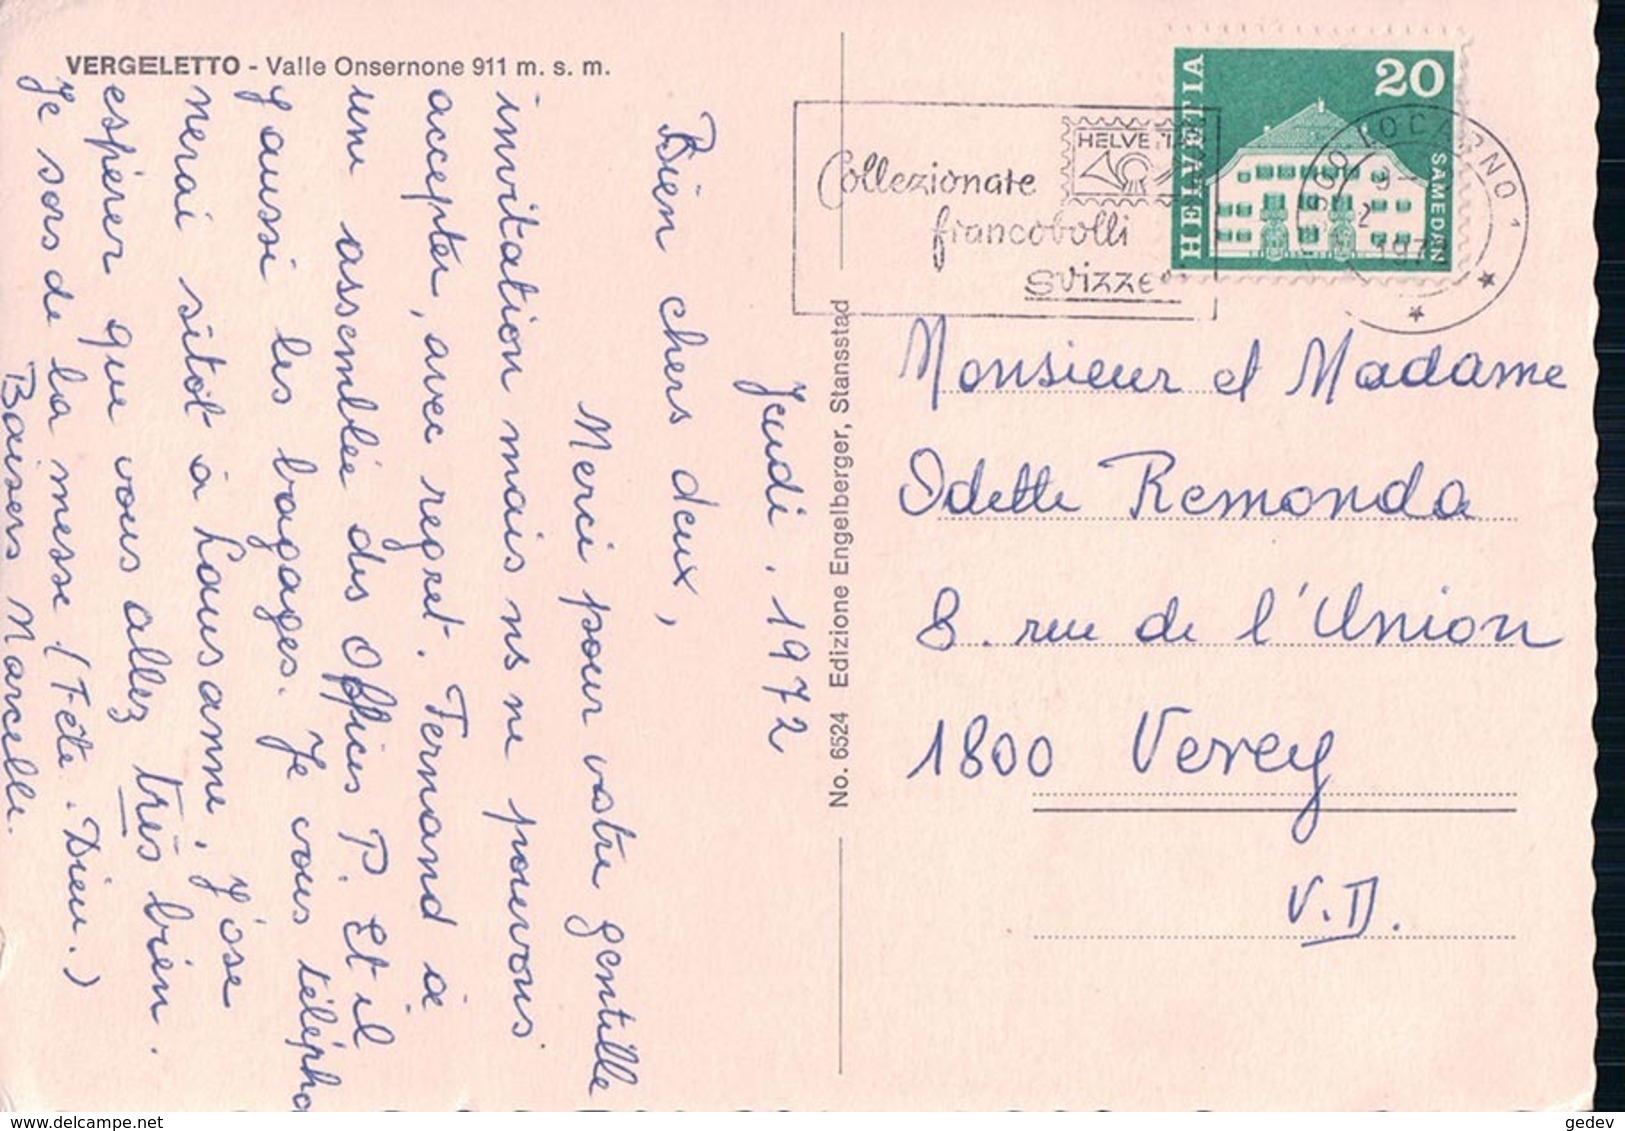 VERGELETTO - Valle Onsernone 911 m. s. m.
Jeudi, 1972
Bien chers deux,
Merci pour votre gentille
invitation mais ns ne pouvons
accepter, avec regret. Fernand a
une assemblée des Offices P. Et il
y aussi les bagages. Je vous télépho
nerai sitôt à Lausanne. J'ose
espérer que vous allez très bien.
Je sors de la messe (Fête. Dieu.)
Baisers Marcelle.
No. 6524 Edizione Engelberger, Stansstad
Collezionate
francobolli
svizzeri
HELVETIA
HELVETIA
20
SAMEDAN
LOCARNO 1
1972
Monsieur et Madame
Odette Remonda
8. rue de l'Union
1800 Vevey
V.D.
www.delcampe.net
gedev